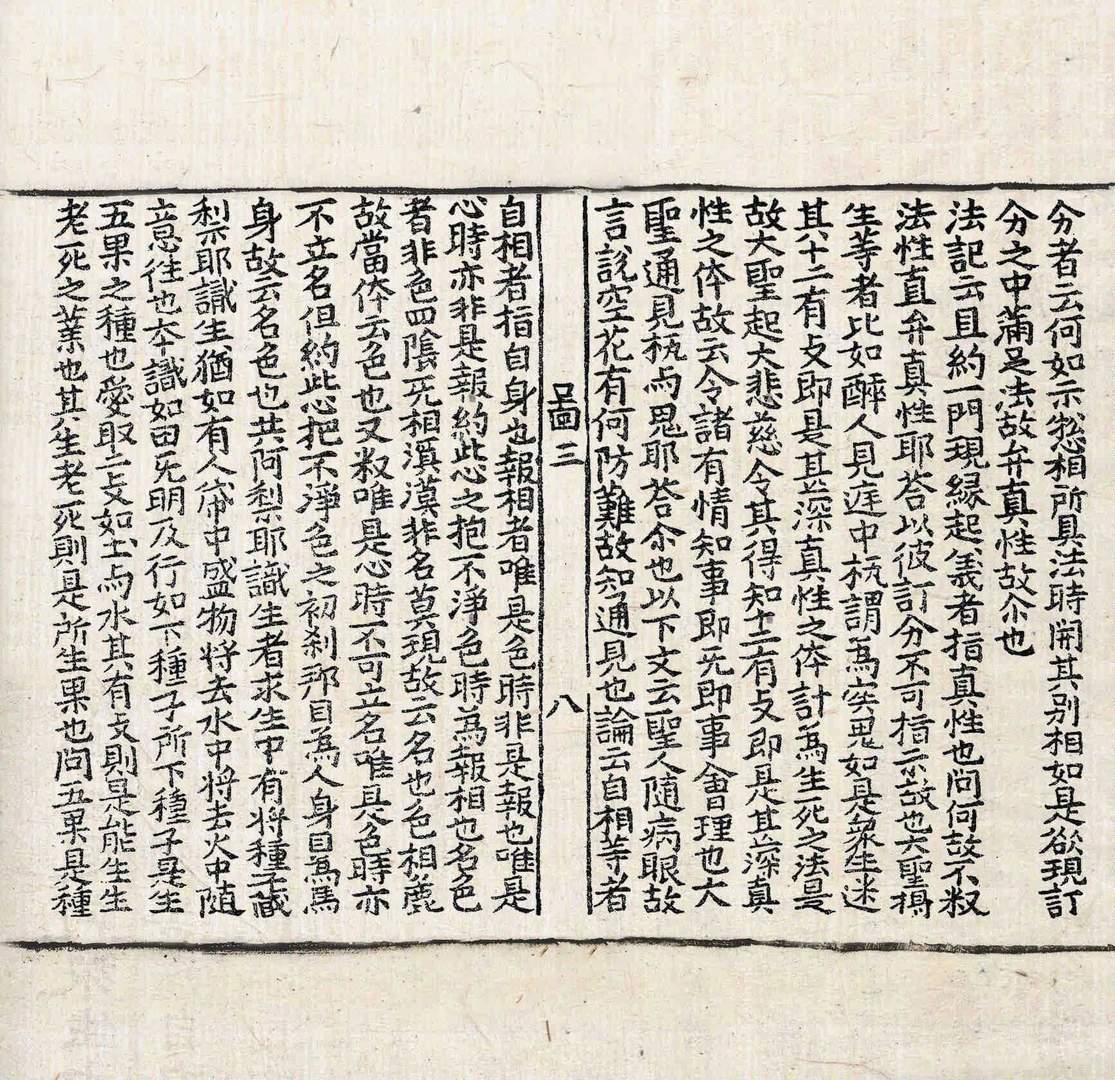 分者云何如示惣相所具法時開其別相如是欲現訂
分之中滿足法故弁真性故尒也
法記云且約一門現緣起義者指真性也问何故不叙
法性直弁真性耶荅以彼訂分不可指示故也大聖
生等者比如醉人見庭中杭謂爲㝎鬼如是衆生迷
其十二有支即是甚深真性之体計爲生死之法是
故大聖起大悲慈令其得知十二有支即是甚深真
性之体故云令諸有情知事即旡即事會理也大
聖通見杭与鬼耶荅尒也以下文云聖人隨病眼故
言說空花有何防難故知通見也論云自相等者
啚三 八
自相者指自身也報相者唯是色時非是報也唯是
心時亦非是報約此心之抱不淨色時爲報相也名色
者非色四陰旡相漠漠非名莫現故云名也色相麁
故當体云色也又叙唯是心時不可立名唯是色時亦
不立名但約此心把不淨色之初刹那目爲人身目爲馬
身故云名色也共阿梨耶識生者求生中有將種子藏
梨耶識生猶如有人帒中盛物將去水中將去火中隨
意往也夲識如田旡明及行如下種子所下種子是生
五果之種也愛取二支如土与水其有支則是能生生
老死之業也其生老死則是所生果也问五果是種